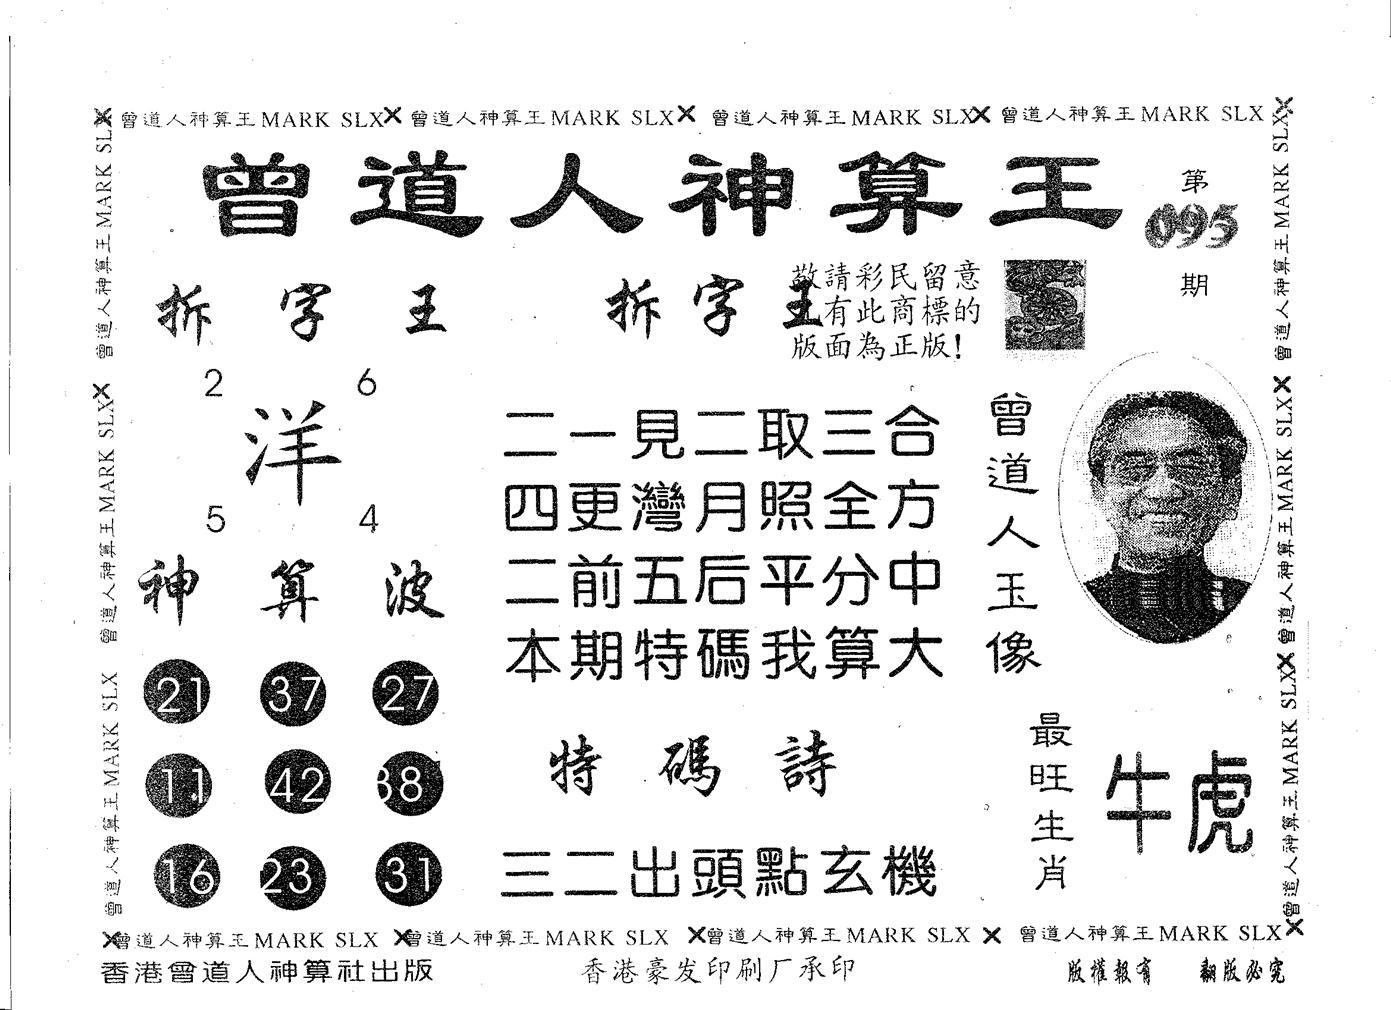 曾道人神算王MARK SLX 曾道人神算王MARK SLX 曾道人神算王MARK SLX 曾道人神算王MARK SLX
曾道人神算王
第
095
期
拆字王
拆字王
敬請彩民留意
有此商標的
版面為正版!
2 6
洋
5 4
神算波
21 37 27
11 42 38
16 23 31
二一見二取三合
四更灣月照全方
二前五后平分中
本期特碼我算大
特碼詩
三二出頭點玄機
曾道人玉像
最旺生肖
牛虎
曾道人神算王MARK SLX
曾道人神算王MARK SLX
曾道人神算王MARK SLX
曾道人神算王MARK SLX
曾道人神算王MARK SLX
曾道人神算王MARK SLX
曾道人神算王MARK SLX 曾道人神算王MARK SLX 曾道人神算王MARK SLX 曾道人神算王MARK SLX
香港曾道人神算社出版
香港豪发印刷厂承印
版權報有 翻版必究